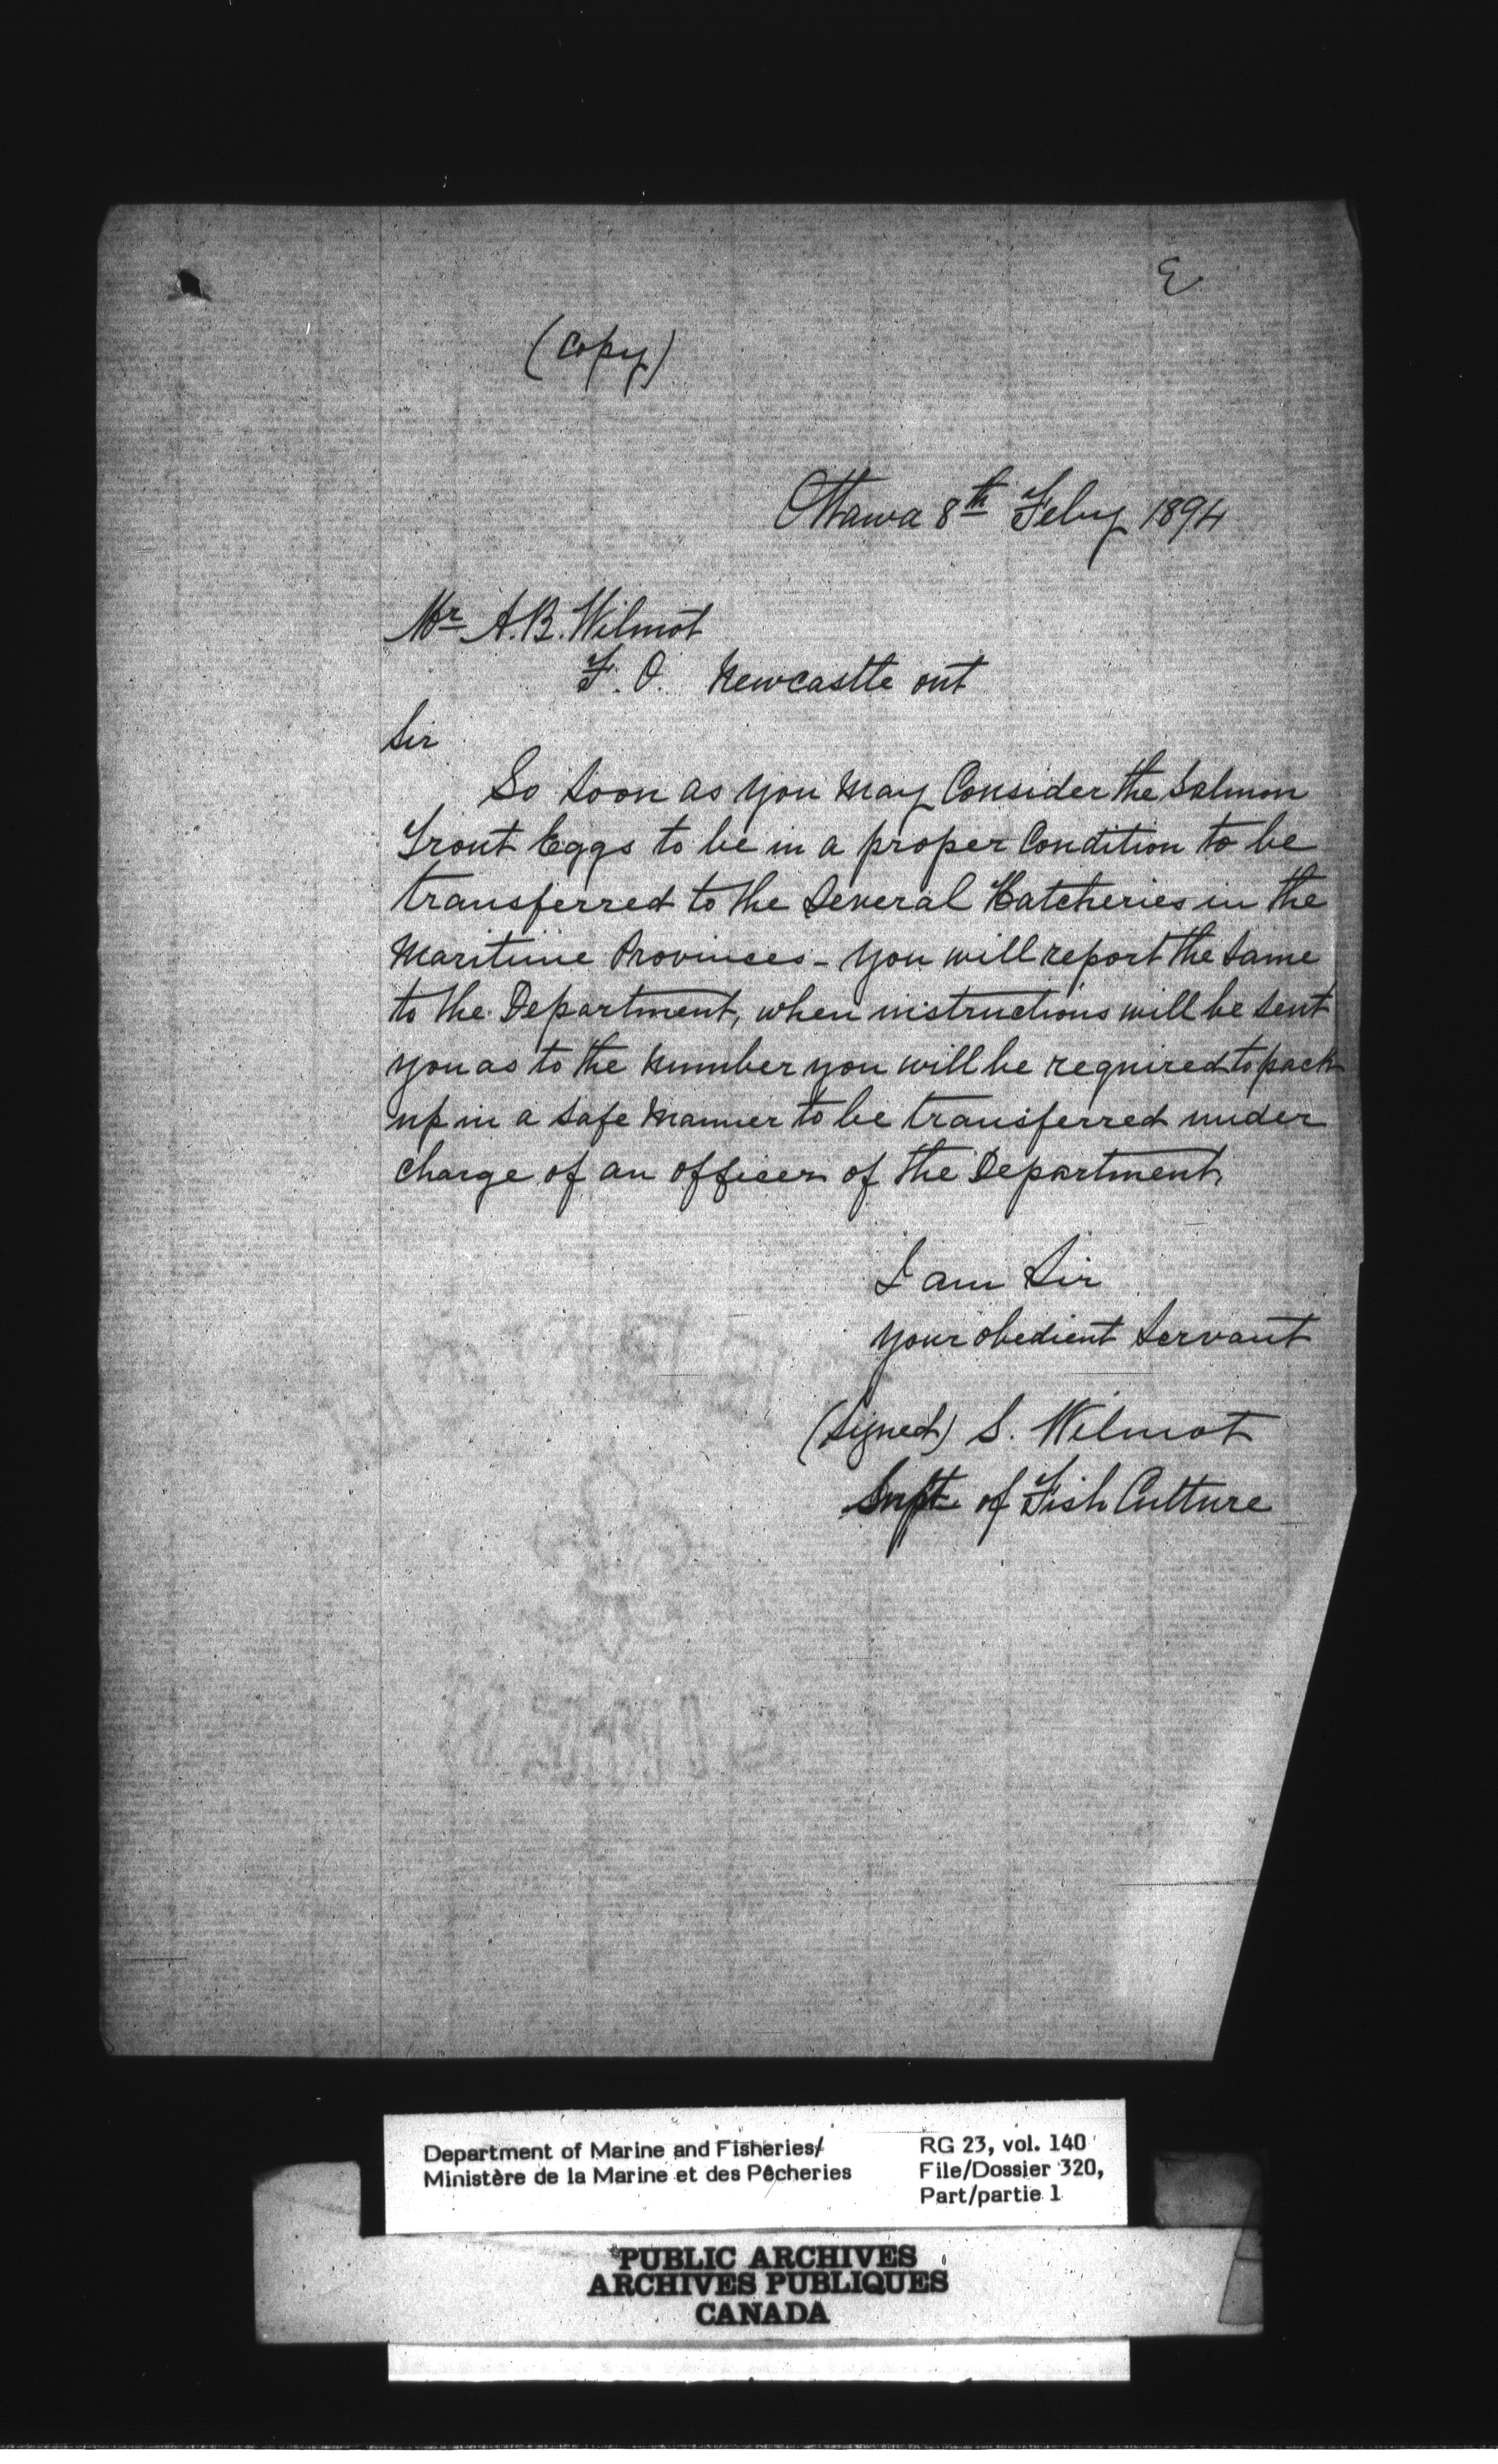 E
(Copy)
Ottawa 8th Feby 1894
Mr A.B. Wilmot
F. O. Newcastle Ont
Sir
So soon as you may Consider the Salmon
Trout Eggs to be in a proper Condition to be
transferred to the Several Hatcheries in the
Maritime Provinces - you will report the same
to the Department, when instructions will be sent
you as to the number you will be required to pack
up in a safe manner to be transferred under
charge of an officer of the Department.
I am Sir
your obedient Servant
(Signed) S. Wilmot
Supt of Fish Culture
Department of Marine and Fisheries/
Ministère de la Marine et des Pêcheries
RG 23, vol. 140
File/Dossier 320,
Part/partie 1
PUBLIC ARCHIVES
ARCHIVES PUBLIQUES
CANADA